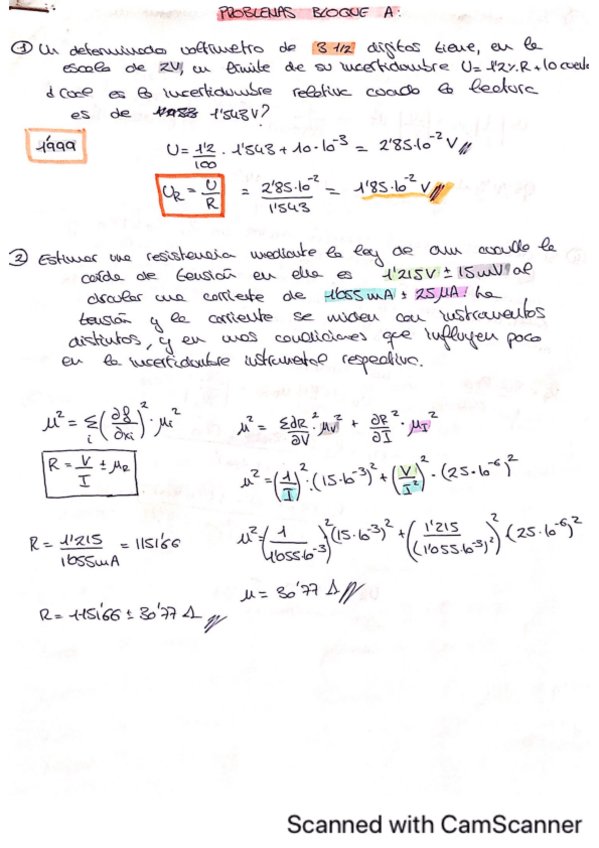 PROBLEMAS BLOQUE A:
① Un determinado voltímetro de 3 1/2 dígitos tiene, en la
escala de 2V, un límite de su incertidumbre U= 1'2% R + 10 cuen
¿ cual es la incertidumbre relativa cuando la lectura
es de 1'543V?
1'999
U = 1'2/100 · 1'543 + 10·10⁻³ = 2'85·10⁻² V
U_R = U/R = 2'85·10⁻²/1'543 = 1'85·10⁻² V
② Estimar una resistencia mediante la ley de Ohm cuando la
caída de tensión en ella es 1'215V ± 15mV al
circular una corriente de 1'055mA ± 25μA. La
tensión y la corriente se miden con instrumentos
distintos, y en unas condiciones que influyen poco
en la incertidumbre instrumental respectiva.
μ² = Σᵢ (∂f/∂xi)² · μi²
μ² = Σ∂R/∂V ² · μv² + ∂R/∂I ² · μI²
R = V/I ± μR
μ² = (1/I)² · (15·10⁻³)² + (V/I²)² · (25·10⁻⁶)²
R = 1'215/1'055mA = 1151'66
μ² = (1/1'055·10⁻³)² (15·10⁻³)² + (1'215/(1'055·10⁻³)²)² (25·10⁻⁶)²
μ = 30'77 Ω
R = 1151'66 ± 30'77 Ω
Scanned with CamScanner